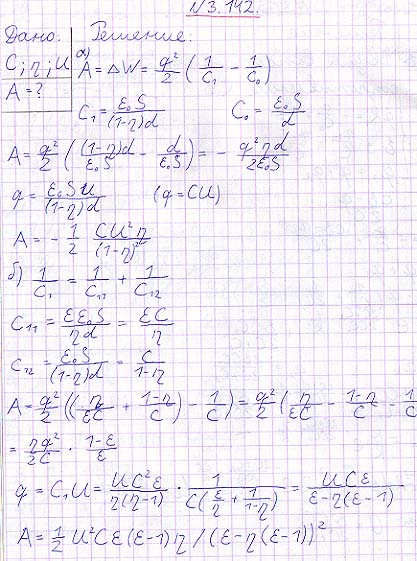 N 3.142.
Дано: Решение:
C; η; U а) A = ΔW = q²/2 (1/C₁ - 1/C₀)
A = ?
C₁ = ε₀S/(1-η)d C₀ = ε₀S/d
A = q²/2 ((1-η)d/ε₀S - d/ε₀S) = - q²ηd/2ε₀S
q = ε₀SU/(1-η)d (q = CU)
A = - 1/2 CU²η/(1-η)²
б) 1/C₁ = 1/C₁₁ + 1/C₁₂
C₁₁ = εε₀S/ηd = εC/η
C₁₂ = ε₀S/(1-η)d = C/1-η
A = q²/2 ((η/εC + 1-η/C) - 1/C) = q²/2 (η/εC - 1-η/C - 1/C
= ηq²/2C · 1-ε/ε
q = C₁U = UC²ε/η(η-1) · 1/C(ε/η + 1/1-η) = UCε/ε-η(ε-1)
A = 1/2 U²Cε(ε-1)η/(ε-η(ε-1))²